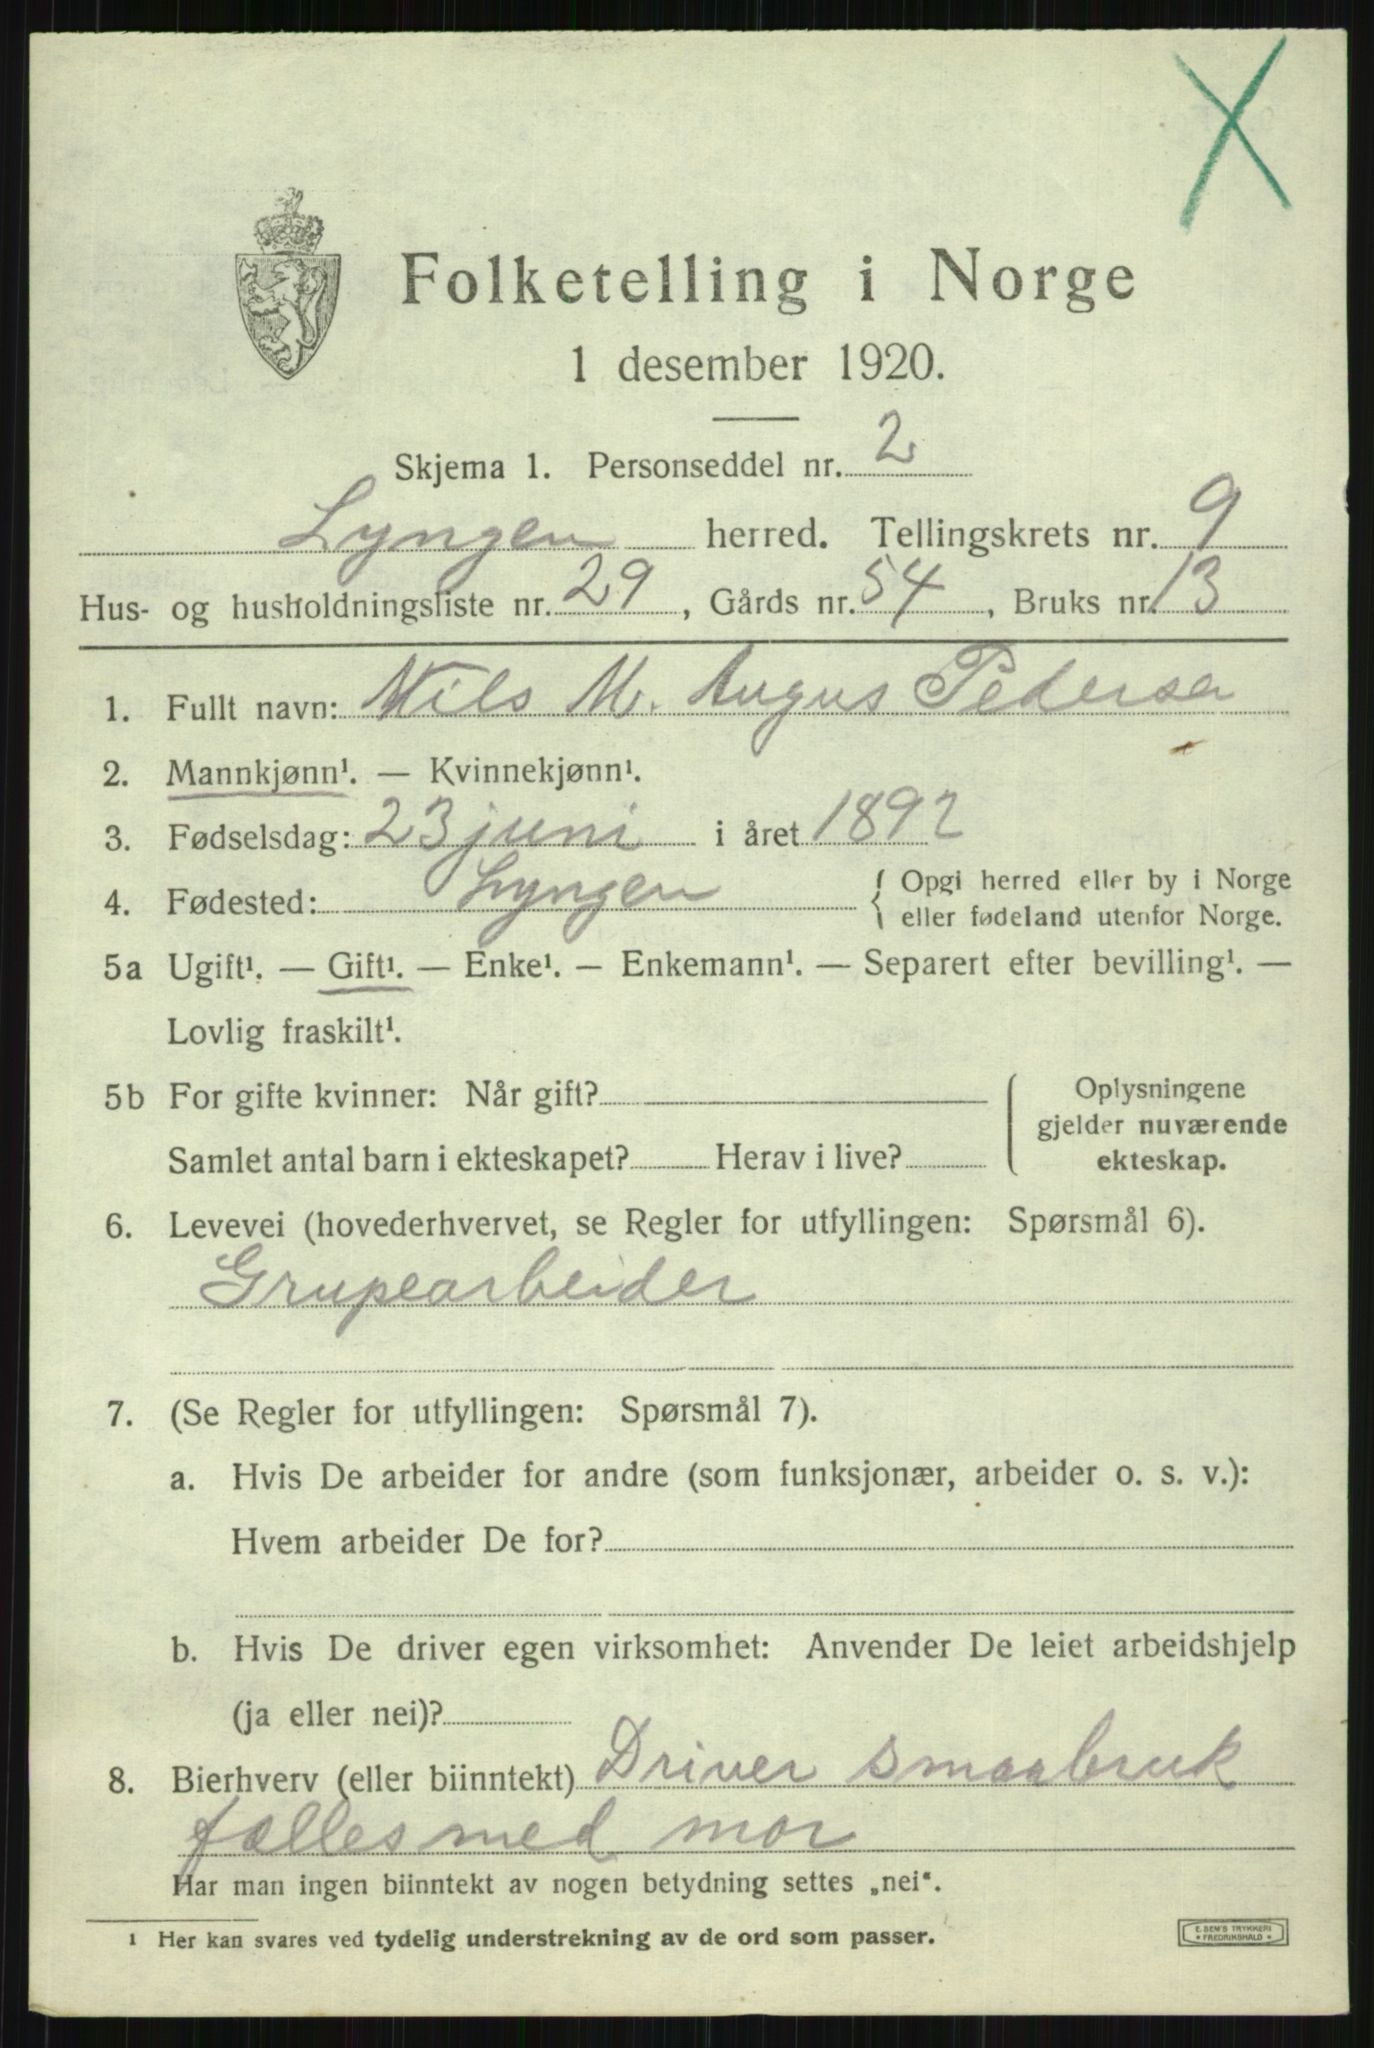 Folketelling i Norge
1 desember 1920.
Skjema 1. Personseddel nr. 2
Lyngen herred. Tellingskrets nr. 9
Hus- og husholdningsliste nr. 29, Gårds nr. 54, Bruks nr. 13
1. Fullt navn: Nils M. Augus Pedersen
2. Mannkjønn¹. — Kvinnekjønn¹.
3. Fødselsdag: 23 juni i året 1892
4. Fødested: Lyngen { Opgi herred eller by i Norge
eller fødeland utenfor Norge.
5a Ugift¹. — Gift¹. — Enke¹. — Enkemann¹. — Separert efter bevilling¹. —
Lovlig fraskilt¹.
5b For gifte kvinner: Når gift?
Samlet antal barn i ekteskapet? Herav i live?
Oplysningene
gjelder nuværende
ekteskap.
6. Levevei (hovederhvervet, se Regler for utfyllingen: Spørsmål 6).
Grupearbeider
7. (Se Regler for utfyllingen: Spørsmål 7).
a. Hvis De arbeider for andre (som funksjonær, arbeider o. s. v.):
Hvem arbeider De for?
b. Hvis De driver egen virksomhet: Anvender De leiet arbeidshjelp
(ja eller nei)?
8. Bierhverv (eller biinntekt) Driver smaabruk
fælles med mor
Har man ingen biinntekt av nogen betydning settes „nei“.
¹ Her kan svares ved tydelig understrekning av de ord som passer.
E. SEM'S TRYKKERI
FREDRIKSHALD